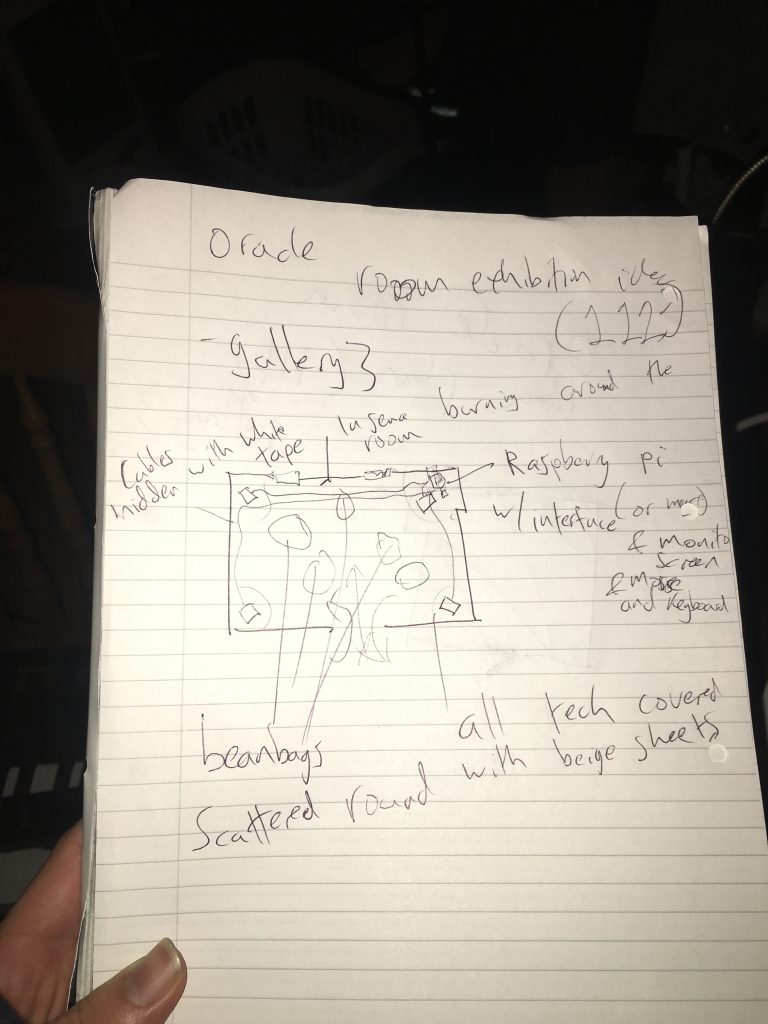 Oracle
room exhibition idea
(112)
- gallery 3
Insense burning around the
room
Cables
hidden
with white
tape
Raspberry pi
w/ interface (or
& monitor
screen
& mouse
and keyboard
beanbags
Scattered round
all tech covered
with beige sheets